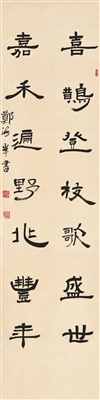 喜鵲登枝歌盛世
嘉禾遍野兆豐年
鄭海年書